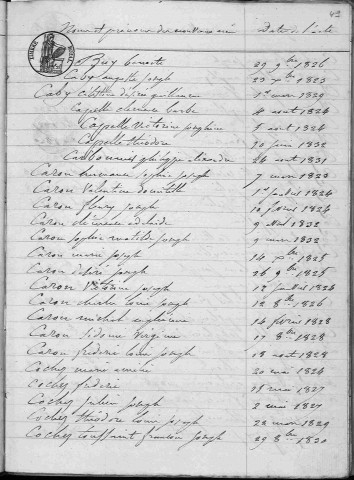 49
Noms et prénoms des nouveaux nés Date de l'acte
Buy benoite 29 9bre 1826
Caby auguste joseph 23 xbre 1823
Caby célestine désirée guillaume 1er mars 1829
Capelle clémence barbe 4 août 1824
Capelle victorine joséphine 5 août 1824
Capelle théodore 10 juin 1832
Carbonnier philippe 24 août 1831
Caron sophie joseph 7 mars 1823
Caron valentin 1er juillet 1824
Caron fleury joseph 10 1824
Caron clémence adélaïde 9 1832
Caron sophie matilde joseph 9 mars 1832
Caron marie joseph 14 xbre 1825
Caron désiré joseph 26 9bre 1825
Caron joseph 12 juillet 1826
Caron charles louis joseph 12 8bre 1826
Caron michel 14 février 1828
Caron sidonie virginie 17 8bre 1828
Caron frédéric louis joseph 18 août 1828
Cochez marie aimée 20 mai 1824
Cochez fidéric 28 mai 1827
Cochez julien joseph 2 mai 1827
Cochez théodore louis joseph 22 mars 1829
Cochez toussaint joseph 29 8bre 1830